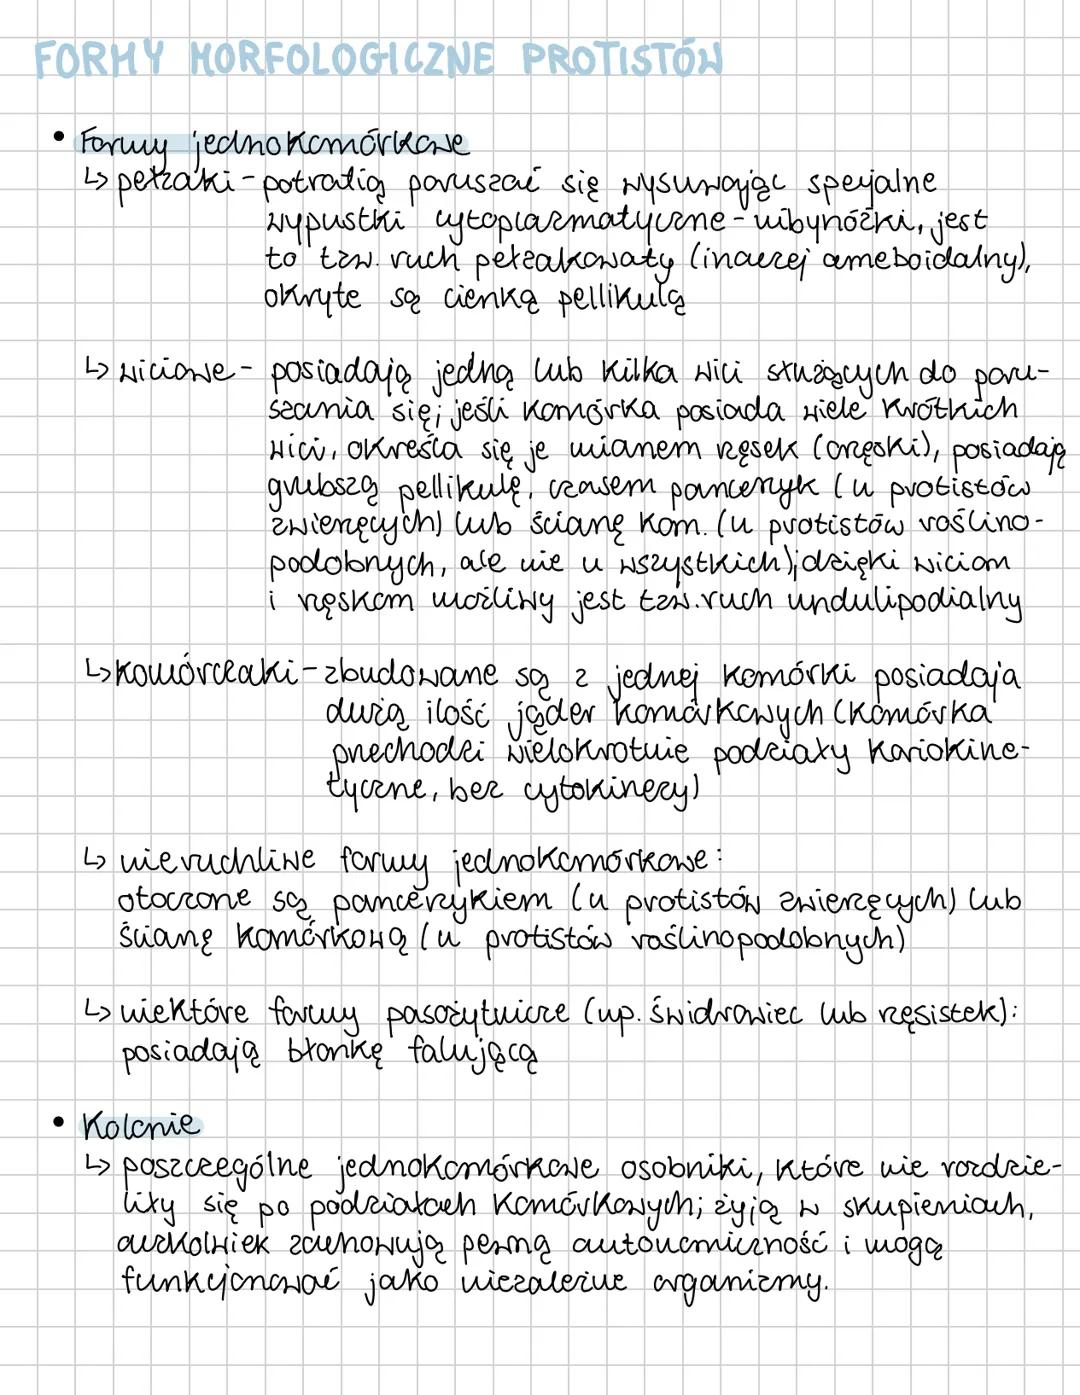 FORMY MORFOLOGICZNE PROTISTÓW
• Formy jednokomórkowe
↳ pełzaki - potrafią poruszać się wysuwając spejalne
wypustki cytoplazmatyczne - nibynóżki, jest
to tzw. ruch pełzakowaty (inaczej ameboidalny),
okryte są cienką pellikulą
↳ wiciowe - posiadają jedną lub kilka wici służących do poru-
szania się; jeśli komórka posiada wiele krótkich
wici, określa się je mianem rzęsek (orzęski), posiadają
grubszą pellikulę, czasem pancerzyk (u protistów
zwierzęcych) lub ścianę kom. (u protistów roślino-
podobnych, ale nie u wszystkich); dzięki wiciom
i rzęskom możliwy jest tzw. ruch undulipodialny
↳ komórczaki - zbudowane są z jednej komórki posiadaja
dużą ilość jąder komórkowych (komórka
przechodzi wielokrotnie podziały kariokine-
tyczne, bez cytokinezy)
↳ nieruchliwe formy jednokomórkowe:
otoczone są pancerzykiem (u protistów zwierzęcych) lub
ścianę komórkową (u protistów roślinopodobnych)
↳ niektóre formy pasożytnicze (np. świdrowiec lub rzęsistek):
posiadają błonkę falującą
• Kolonie
↳ poszczególne jednokomórkowe osobniki, które nie rozdzie-
liły się po podziałach komórkowych; żyją w skupieniach,
aczkolwiek zachowują pewną autonomiczność i mogą
funkcjonować jako niezależne organizmy.